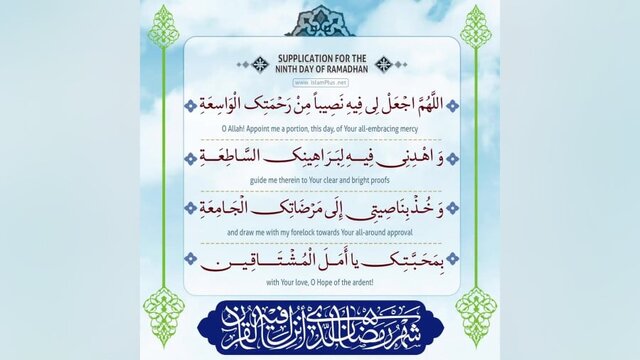 SUPPLICATION FOR THE
NINTH DAY OF RAMADHAN
www.IslamPlus.net
اللَّهُمَّ اجْعَلْ لِي فِيهِ نَصِيباً مِنْ رَحْمَتِكَ الْوَاسِعَةِ
O Allah! Appoint me a portion, this day, of Your all-embracing mercy
وَ اهْدِنِي فِيهِ لِبَرَاهِينِكَ السَّاطِعَةِ
guide me therein to Your clear and bright proofs
وَ خُذْ بِنَاصِيَتِي إِلَى مَرْضَاتِكَ الْجَامِعَةِ
and draw me with my forelock towards Your all-around approval
بِمَحَبَّتِكَ يَا أَمَلَ الْمُشْتَاقِينَ
with Your love, O Hope of the ardent!
شهر رمضان الذي أنزل فيه القرآن